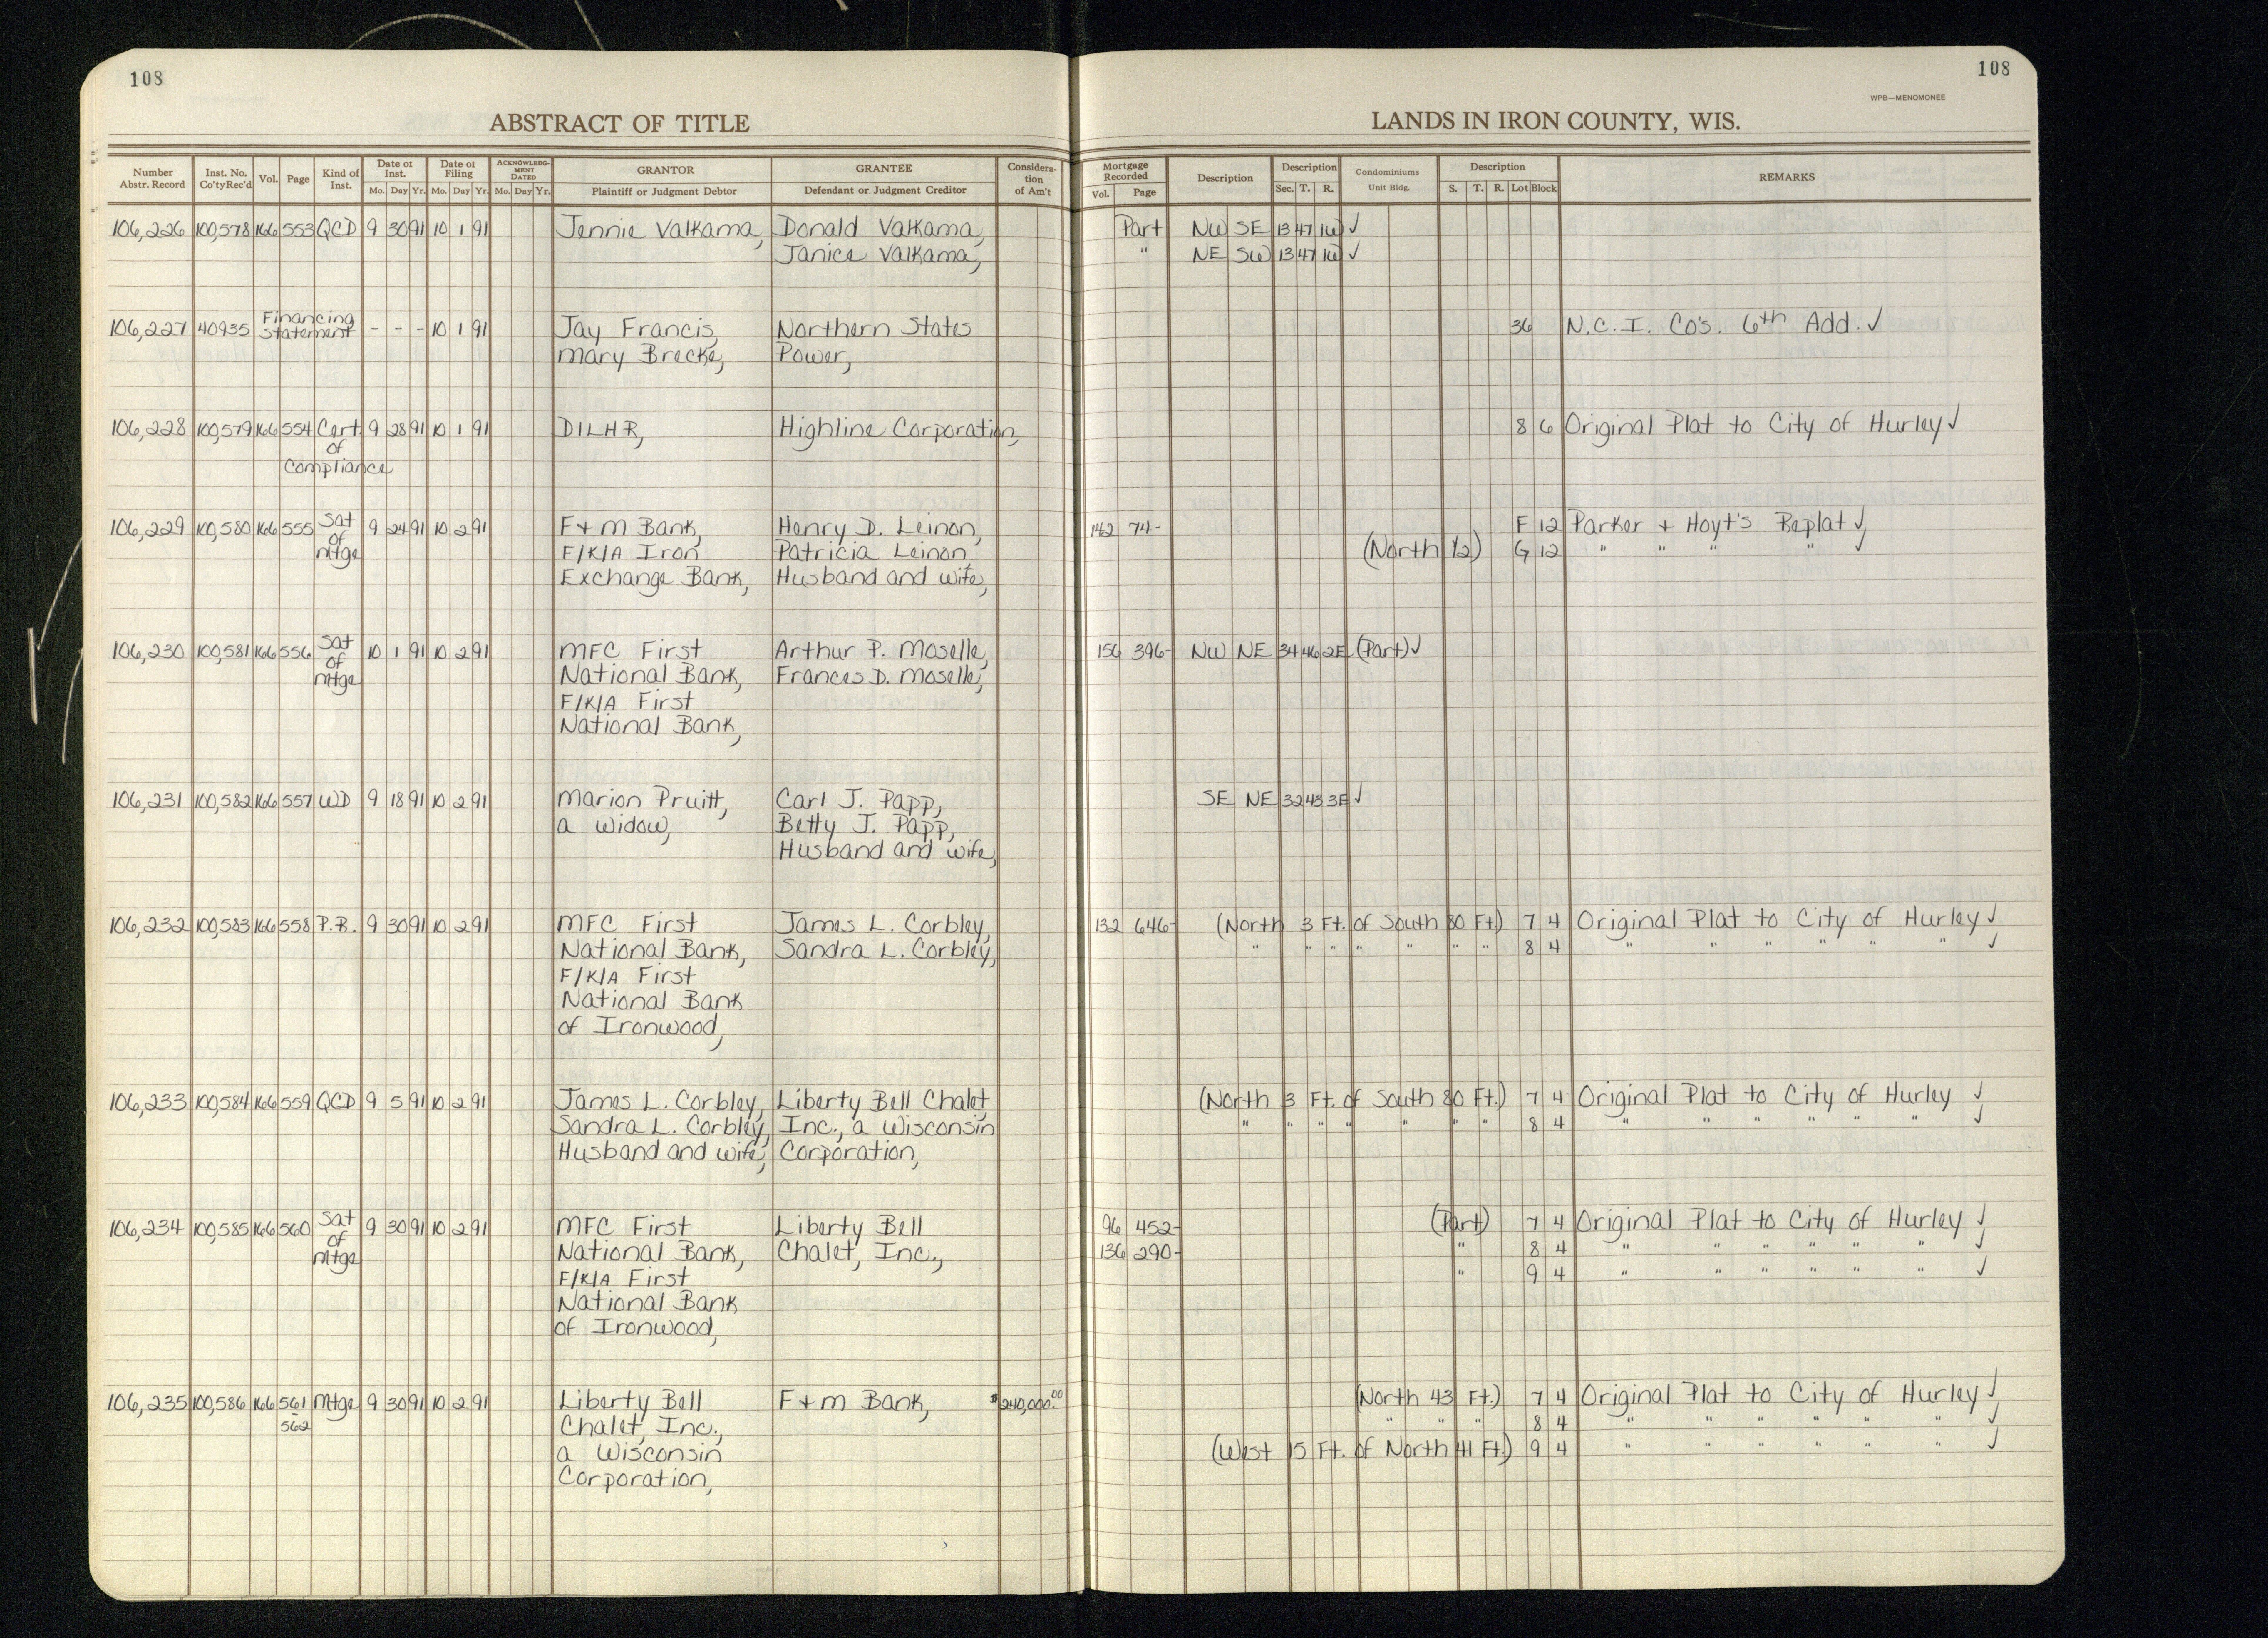 108
108
WPB—MENOMONEE
ABSTRACT OF TITLE
LANDS IN IRON COUNTY, WIS.
Number Abstr. Record | Inst. No. Co'ty Rec'd | Vol. | Page | Kind of Inst. | Date of Inst. Mo. Day Yr. | Date of Filing Mo. Day Yr. | ACKNOWLEDGMENT DATED Mo. Day Yr. | GRANTOR Plaintiff or Judgment Debtor | GRANTEE Defendant or Judgment Creditor | Consideration of Am't | Mortgage Recorded Vol. Page | Description | Description Sec. T. R. | Condominiums Unit Bldg. | Description S. T. R. Lot Block | REMARKS
106,226 100,578 166 553 QCD 9 30 91 10 1 91 Jennie Valkama, Donald Valkama, Part NW SE 13 47 1W ✓
Janice Valkama, " NE SW 13 47 1W ✓
106,227 40935 Financing Statement - - - 10 1 91 Jay Francis, Northern States 36 N.C.I. Co's. 6th Add. ✓
Mary Brecke, Power,
106,228 100,579 166 554 Cert 9 28 91 10 1 91 DILHR, Highline Corporation, 8 6 Original Plat to City of Hurley ✓
of
Compliance
106,229 100,580 166 555 Sat 9 24 91 10 2 91 F+M Bank, Henry D. Leinon, 142 74- F 12 Parker + Hoyt's Replat ✓
of F/K/A Iron Patricia Leinon (North 1/2) G 12 " " " " ✓
Mtge Exchange Bank, Husband and wife,
106,230 100,581 166 556 Sat 10 1 91 10 2 91 MFC First Arthur P. Moselle, 156 396- NW NE 34 46 2E (Part) ✓
of National Bank, Frances D. Moselle,
Mtge F/K/A First
National Bank,
106,231 100,582 166 557 WD 9 18 91 10 2 91 Marion Pruitt, Carl J. Papp, SE NE 32 43 3E ✓
a widow, Betty J. Papp,
Husband and wife,
106,232 100,583 166 558 P.R. 9 30 91 10 2 91 MFC First James L. Corbley, 132 646- (North 3 Ft. of South 80 Ft.) 7 4 Original Plat to City of Hurley ✓
National Bank, Sandra L. Corbley, " " " " " " " 8 4 " " " " " " ✓
F/K/A First
National Bank
of Ironwood,
106,233 100,584 166 559 QCD 9 5 91 10 2 91 James L. Corbley, Liberty Bell Chalet, (North 3 Ft. of South 80 Ft.) 7 4 Original Plat to City of Hurley ✓
Sandra L. Corbley, Inc., a Wisconsin " " " " " " " 8 4 " " " " " " ✓
Husband and wife, Corporation,
106,234 100,585 166 560 Sat 9 30 91 10 2 91 MFC First Liberty Bell 96 452- (Part) 7 4 Original Plat to City of Hurley ✓
of National Bank, Chalet, Inc., 136 290- " 8 4 " " " " " " ✓
Mtge F/K/A First " 9 4 " " " " " " ✓
National Bank
of Ironwood,
106,235 100,586 166 561 Mtge 9 30 91 10 2 91 Liberty Bell F+M Bank, $240,000.00 (North 43 Ft.) 7 4 Original Plat to City of Hurley ✓
562 Chalet, Inc., " " " 8 4 " " " " " " ✓
a Wisconsin (West 15 Ft. of North 41 Ft.) 9 4 " " " " " " ✓
Corporation,